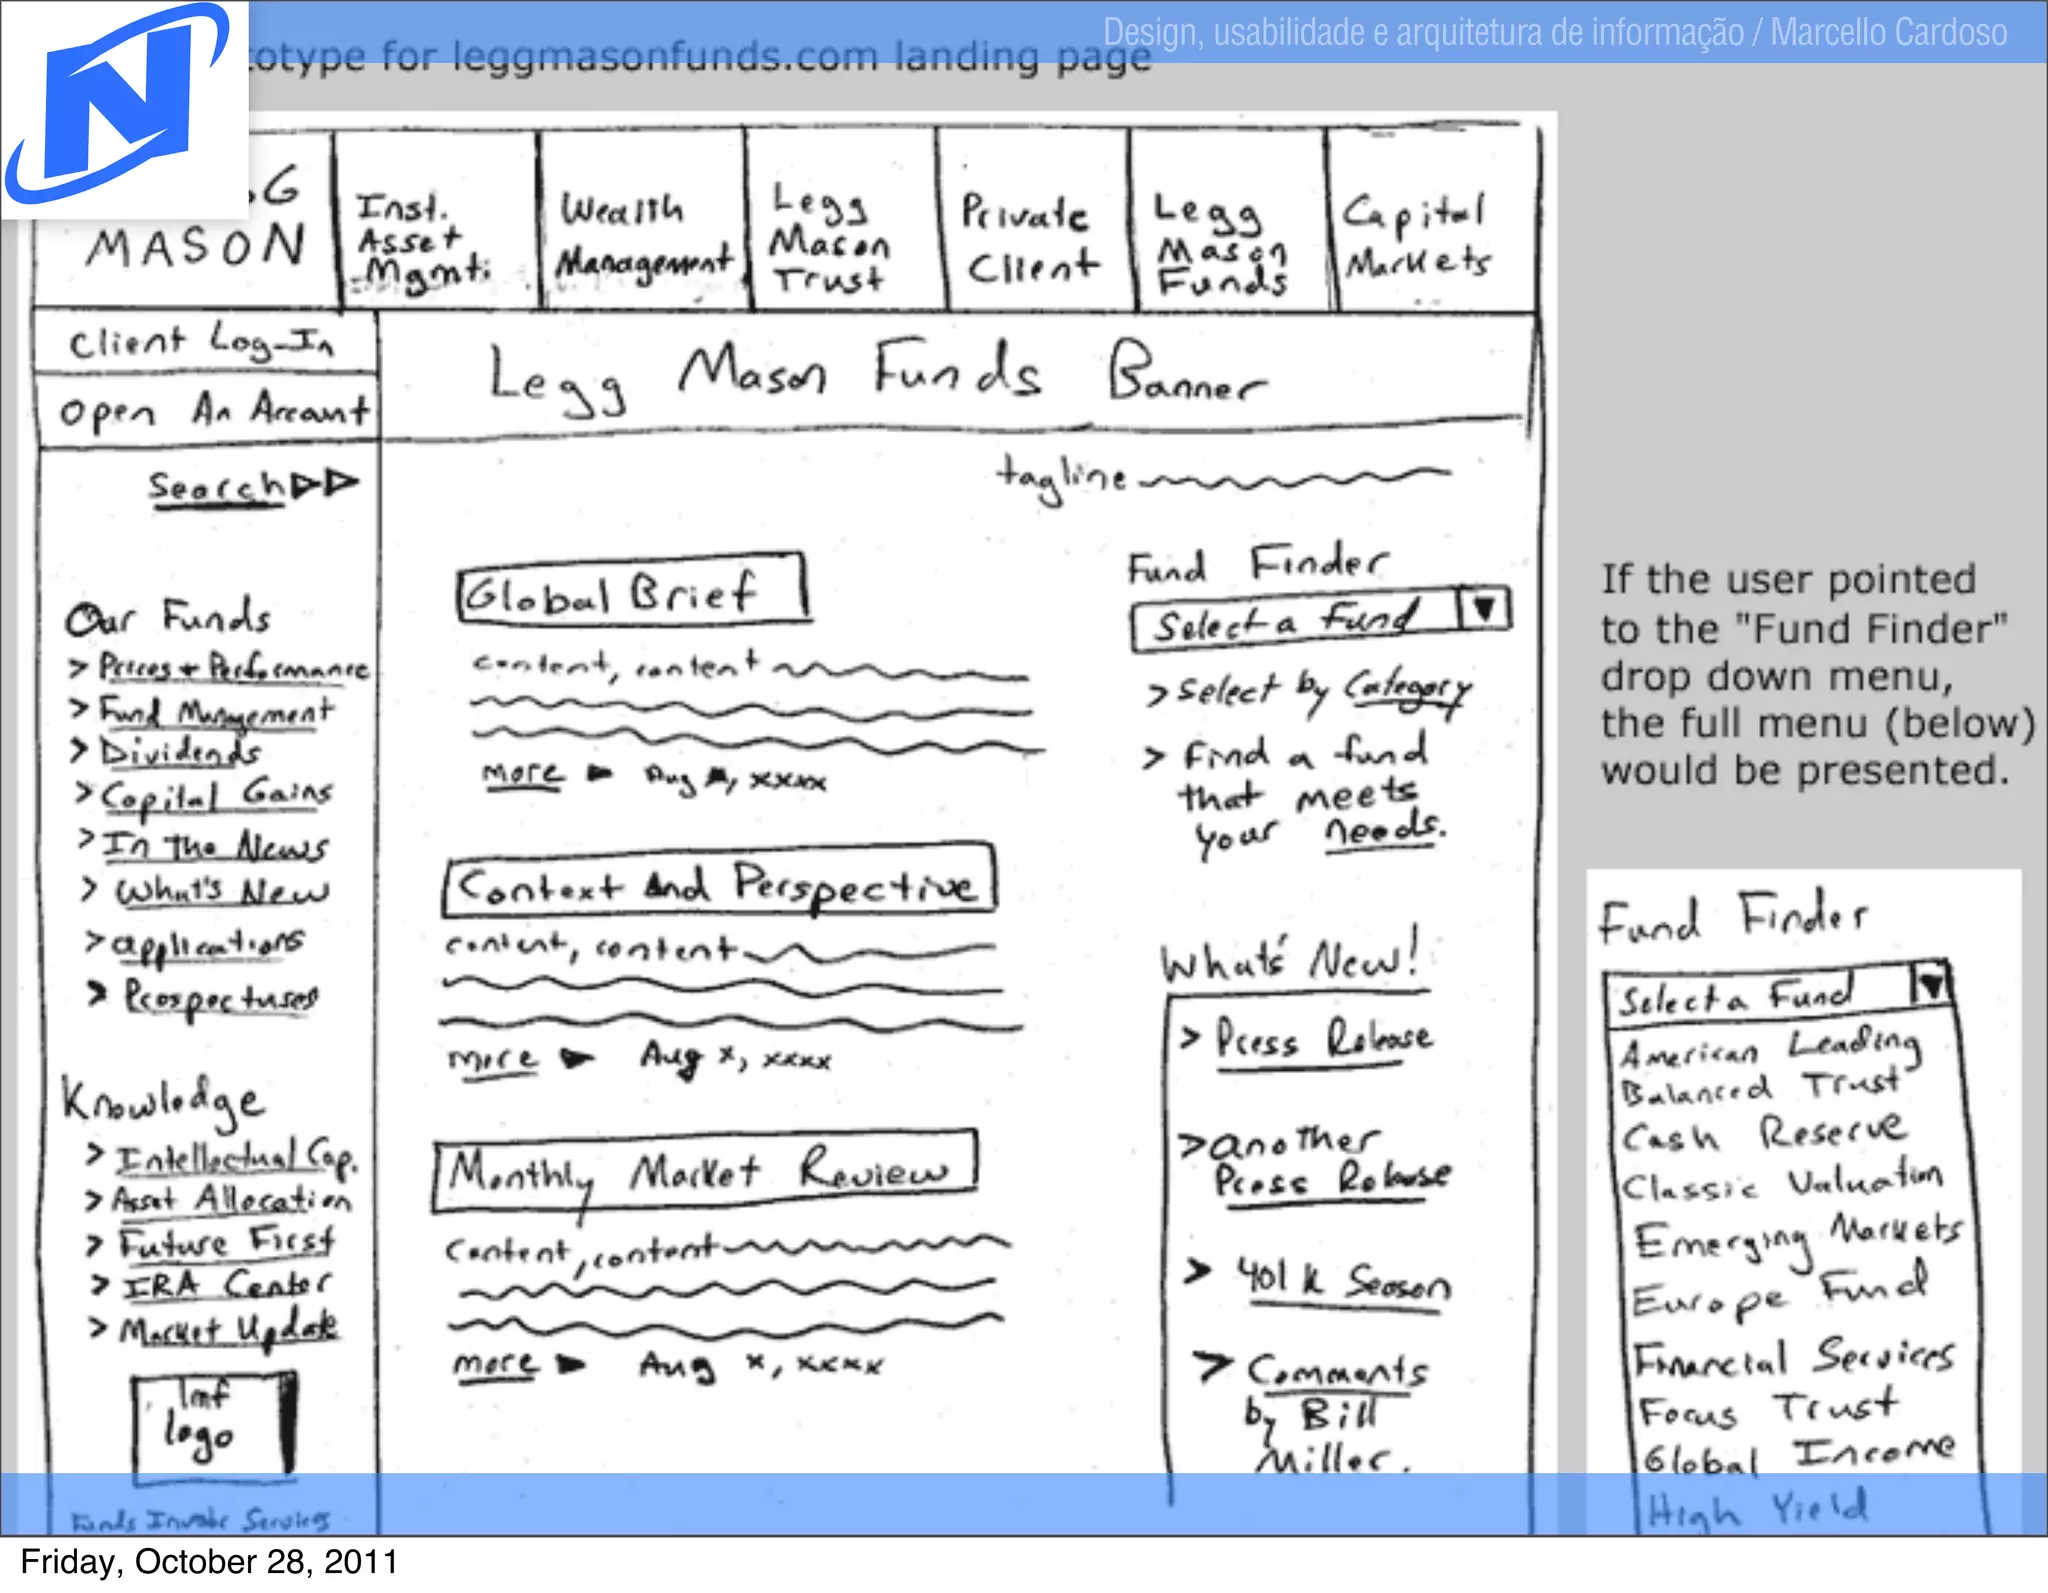 Design, usabilidade e arquitetura de informação / Marcello Cardoso
for leggmasonfunds.com landing page
MASON
Inst.
Asset
Mgmt.
Wealth
Management
Legg
Mason
Trust
Private
Client
Legg
Mason
Funds
Capital
Markets
Client Log-In
Open An Account
Legg Mason Funds Banner
Search
tagline
Our Funds
> Prices + Performance
> Fund Management
> Dividends
> Capital Gains
> In The News
> What's New
> applications
> Prospectuses
Knowledge
> Intellectual Cap.
> Asset Allocation
> Future First
> IRA Center
> Market Update
lmf
logo
Funds Services
Global Brief
content, content
more Aug , xxxx
Context And Perspective
content, content
more Aug x, xxxx
Monthly Market Review
Content, content
more Aug x, xxxx
Fund Finder
Select a Fund
> Select by Category
> Find a fund
that meets
your needs.
What's New!
> Press Release
> another
Press Release
> 401 k Season
> Comments
by Bill
Miller.
If the user pointed
to the "Fund Finder"
drop down menu,
the full menu (below)
would be presented.
Fund Finder
Select a Fund
American Leading
Balanced Trust
Cash Reserve
Classic Valuation
Emerging Markets
Europe Fund
Financial Services
Focus Trust
Global Income
High Yield
Friday, October 28, 2011